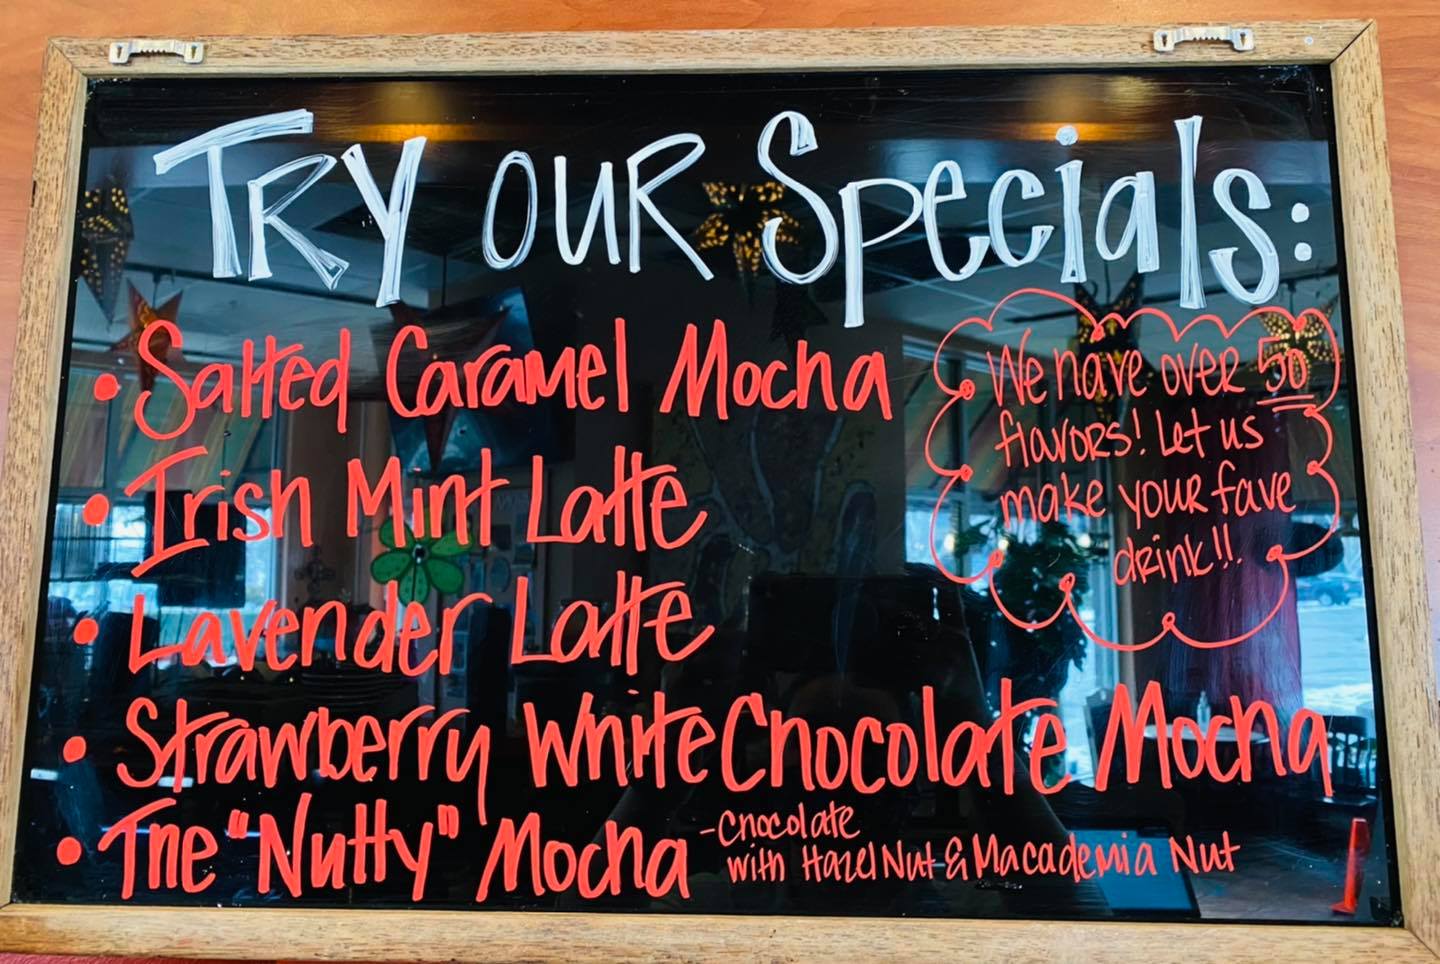 TRY OUR Specials:
• Salted Caramel Mocha
• Irish Mint Latte
• Lavender Latte
• Strawberry White Chocolate Mocha
• The "Nutty" Mocha
-Chocolate
with Hazel Nut & Macademia Nut
We have over 50
flavors! Let us
make your fave
drink!!